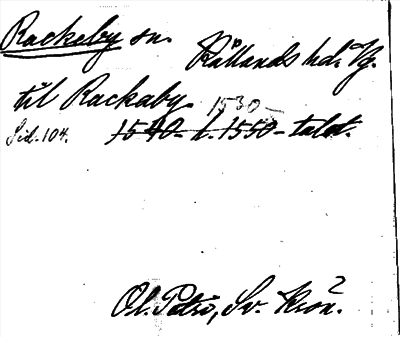 Rackeby sn.
Kållands hd. Vg.
til Rackaby 1530-
Sid. 104. 1540- l. 1550-talet.
Ol. Petri, Sv. Krön.²